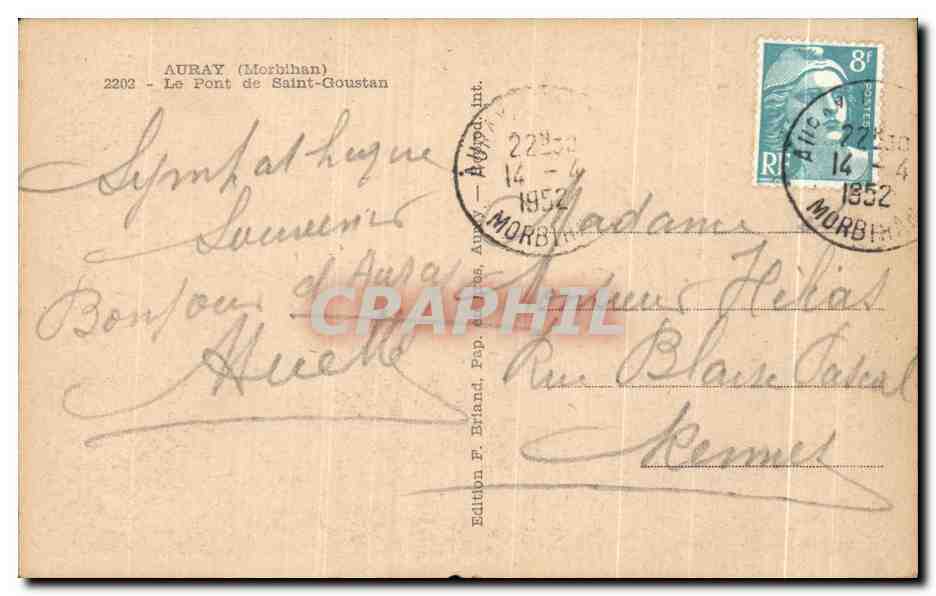 AURAY (Morbihan)
2202 - Le Pont de Saint-Goustan
Sympathique
Souvenir
Bonjour d'Auray
Edition F. Briand, Pap. Auray — Reprod. int.
8F
POSTES
RF
AURAY
22H30
14 - 4
1952
MORBIHAN
22H30
14 - 4
1952
MORBIHAN
Madame
Monsieur Hélias
Rue Blaise Pascal
Rennes
CRAPHIL